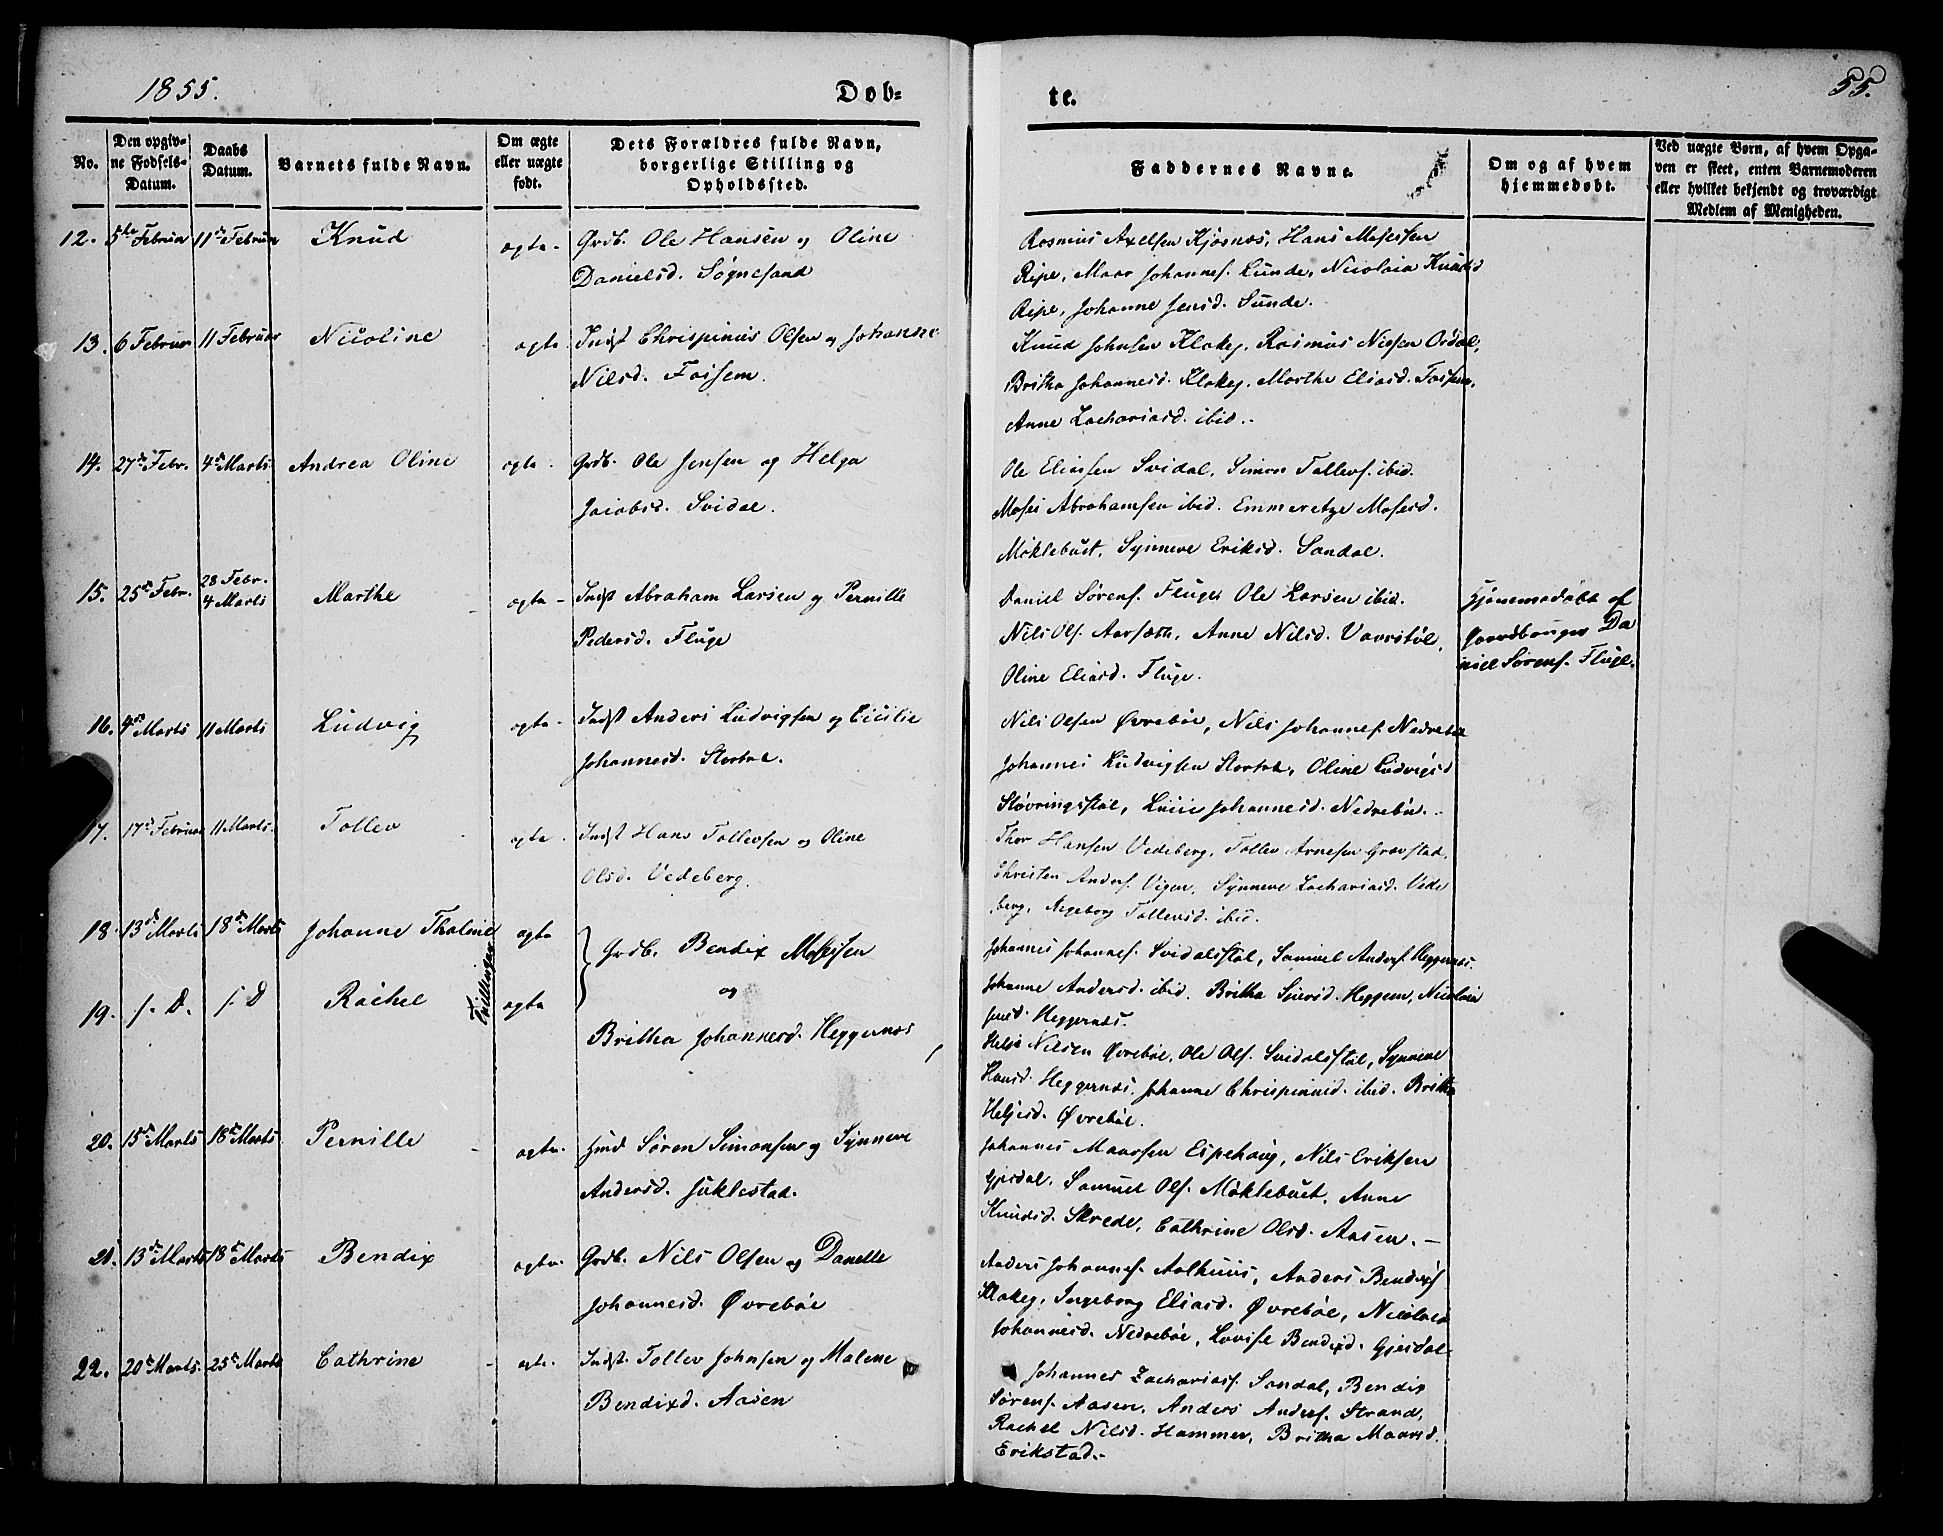 1855.
Døb=
te.
55.
No.
Den opgiv-
ne Fødsels-
Datum.
Daabs
Datum.
Barnets fulde Navn.
Om ægte
eller uægte
født.
Dets Forældres fulde Navn,
borgerlige Stilling og
Opholdssted.
Faddernes Navne.
Om og af hvem
hjemmedøbt.
Ved uægte Børn, af hvem Opga-
ven er skeet, enten Barnemoderen
eller hvilket bekjendt og troværdigt
Medlem af Menigheden.
12. 5te Februar 11te Februar Knud ægte Grdb. Ole Hansen og Oline
Danielsd. Søgnesand
Rasmus Axelsen Kjøsnæs, Hans Mosessen
Ripe, Maar Johannes. Lunde, Nicolaia Knudsd
Ripe, Johanne Jensd. Sunde.
13. 6 Februar 11 Februar Nicoline ægte Indst Chrispinus Olsen og Johanne
Nilsd. Fossem.
Knud Johnsen Klakeg, Rasmus Nielsen Ordal,
Britha Johannesd. Klakeg, Marthe Eliasd. Fossem,
Anne Zachariasd. ibid.
14. 27de Febr. 4de Marts Andrea Oline ægte Grdb. Ole Jensen og Helga
Jacobsd. Svidal.
Ole Eliassen Svidal, Simon Tollevs. ibid.
Moses Abrahamsen ibid. Emmeretze Mosesd.
Møklebust, Synneve Eriksd. Sandal.
15. 25de Febr. 28 Febr.
4 Marts Marthe ægte Indst Abraham Larsen og Pernille
Pedersd. Fluge
Daniel Sørens. Fluge, Ole Larsen ibid.
Nils Ols. Aarsæth, Anne Nilsd. Vaarstøl,
Oline Eliasd. Fluge.
Hjemmedøbt af
Gaardbruger Da
niel Sørens. Fluge.
16. 4de Marts 11 Marts Ludvig ægte Indst Anders Ludvigsen og Cicilie
Johannesd. Stortal.
Nils Olsen Øvrebøe, Nils Johannes. Nedrebøe
Johannes Ludvigsen Stortal, Oline Ludvigsd
Støvringsstøl, Lucie Johannesd. Nedrebøe.
17. 17de Februar 11 Marts. Tollev ægte Indst Hans Tollevsen og Oline
Olsd. Vedeberg.
Thor Hansen Vedeberg, Tollev Arnesen Gravstad,
Christen Anders. Vigen, Synneve Zachariasd. Vede
berg, Ingeborg Tollevsd. ibid.
18. 13de Marts 18de Marts Johanne Thaline ægte
19. s. D. s. D Rachel ægte
Tvillinger
Grdb. Bendix Mosessen
og
Britha Johannesd. Heggernæs
Johannes Johannes. Svidalsstøl, Samuel Anders. Heggernæs.
Johanne Andersd. ibid. Britha Siversd. Heggem, Nicolaia
Jensd. Heggernæs.
Helje Nilsen Øvrebøe, Ole Ols. Svidalsstøl, Synneve
Hansd. Heggernæs, Johanne Chrispinusd. ibid. Britha
Heljesd. Øvrebøe.
20. 15de Marts 18de Marts Pernille ægte Huusmd Søren Simonsen og Synneve
Andersd. Juklestad.
Johannes Maarsen Espehaug, Nils Eriksen
Gjesdal, Samuel Ols. Møklebust, Anne
Knudsd. Skrede, Cathrine Olsd. Aasen. –
21. 13de Marts 18de Marts Bendix ægte Grdb. Nils Olsen og Danelle
Johannesd. Øvrebøe
Anders Johannes. Aalhuus, Anders Bendixs
Klakeg, Ingeborg Eliasd. Øvrebøe, Nicolaia
Johannesd. Nedrebøe, Lovise Bendixd. Gjesdal.
22. 20de Marts. 25de Marts Cathrine ægte Indst. Tollev Johnsen og Malene
Bendixd. Aasen
Johannes Zacharias. Sandal, Bendix
Sørens. Aasen, Anders Anders. Strand,
Rachel Nilsd. Hammer, Britha Maarsd.
Erikstad. –